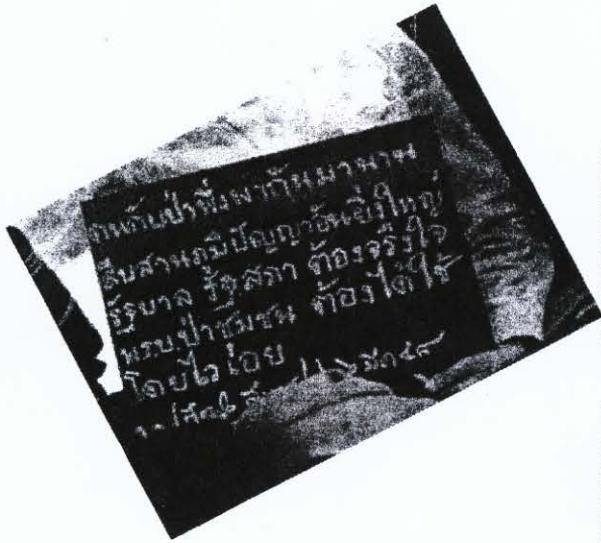 คนกับป่าพึ่งพากันมานาน
สืบสานภูมิปัญญาอันยิ่งใหญ่
รัฐบาล รัฐสภา ต้องจริงใจ
พรบป่าชุมชน ต้องได้ใช้
โดยไว